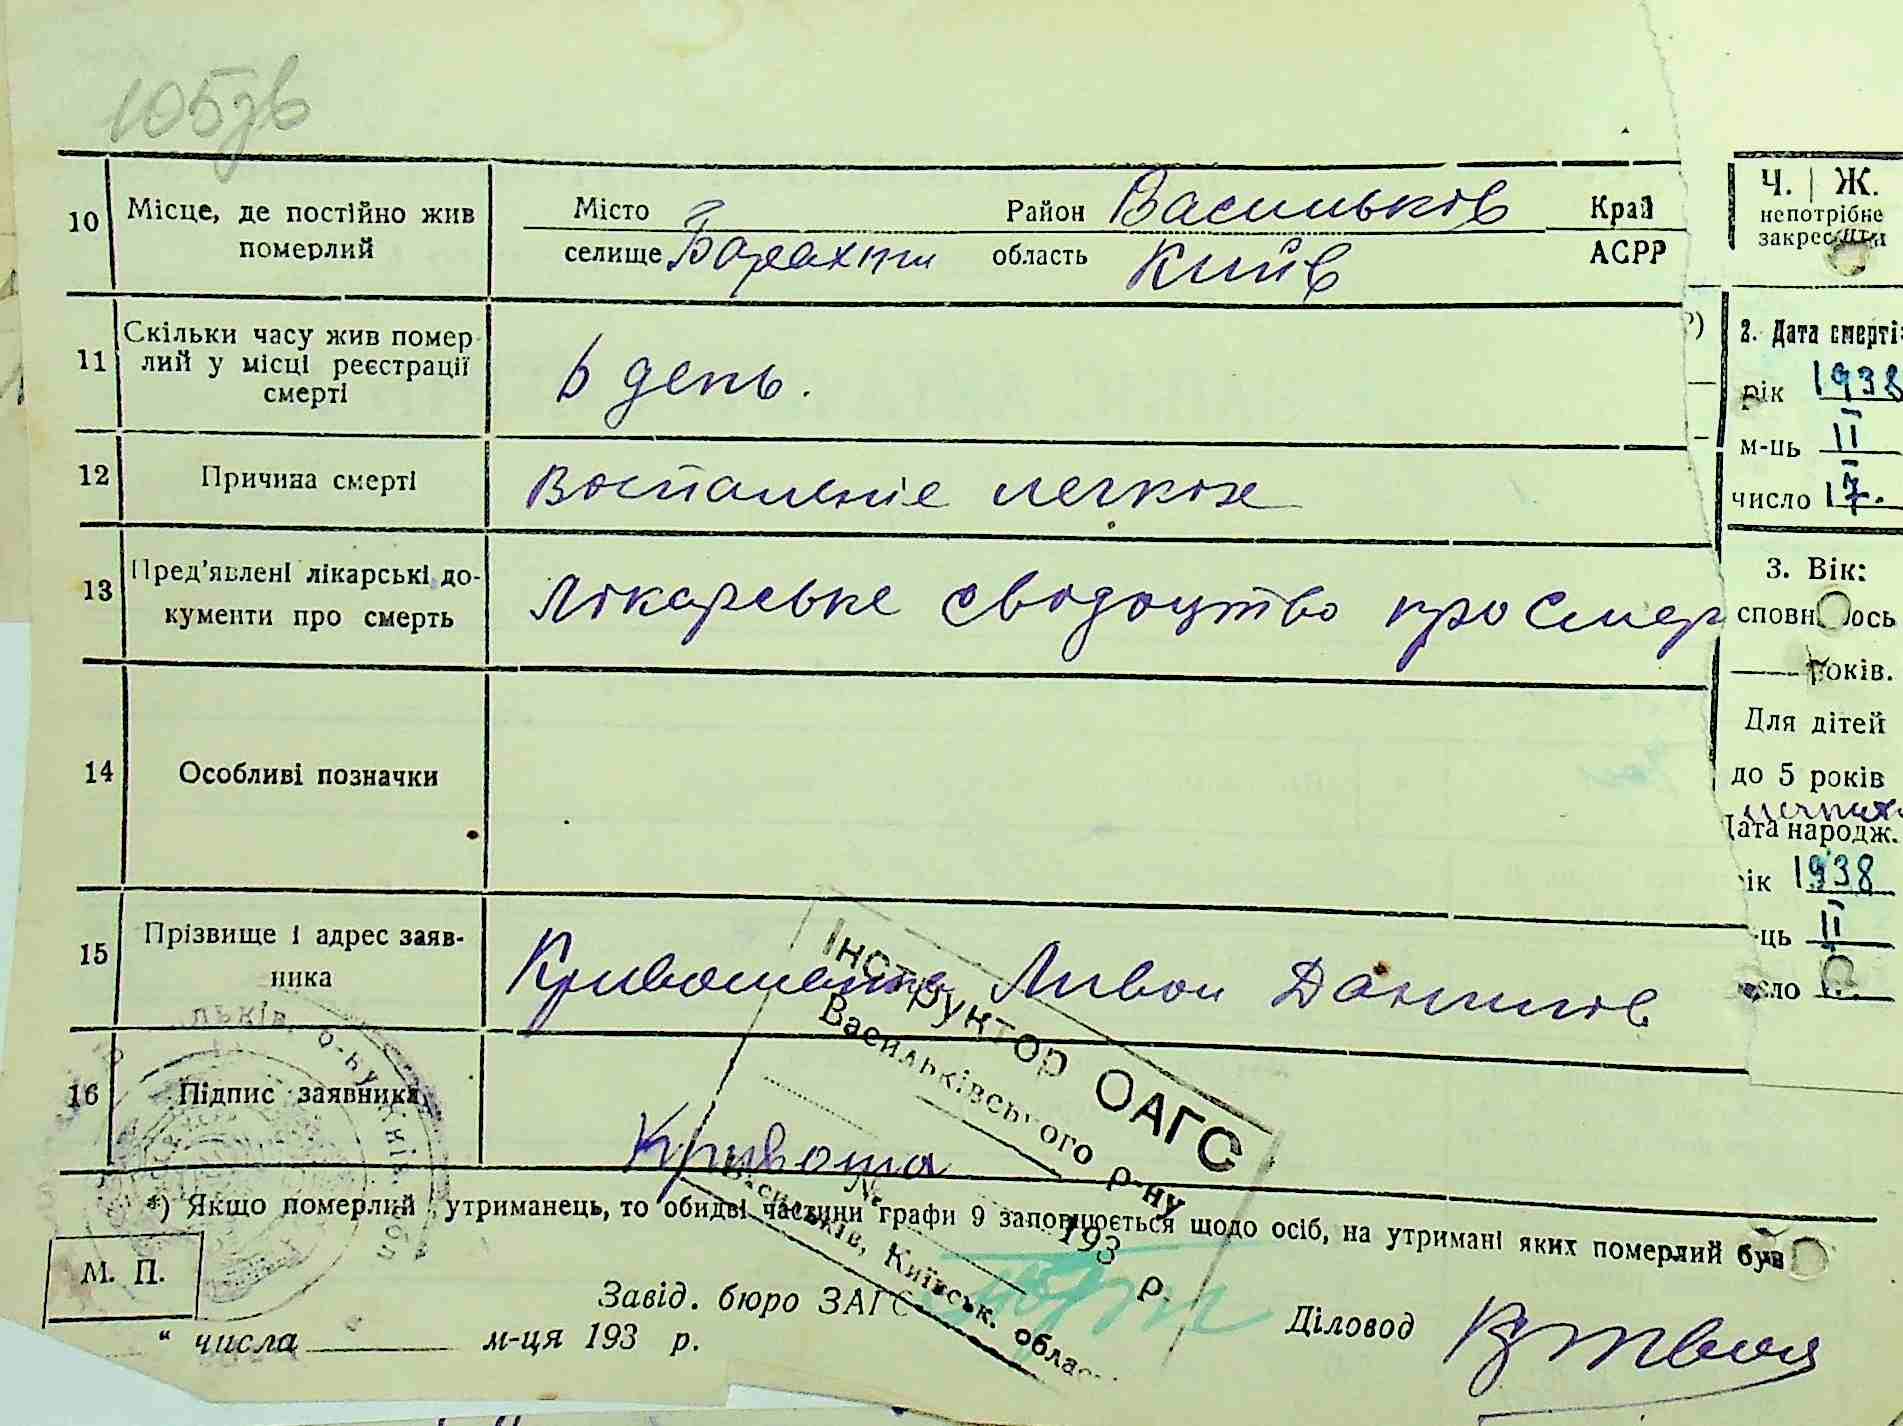 105зв
10 Місце, де постійно жив померлий
Місто Район Васильків Край
селище Барахти область Київ АСРР
11 Скільки часу жив помер-
лий у місці реєстрації
смерті
6 день.
12 Причина смерті Воспаленіе легких
13 Пред'явлені лікарські до-
кументи про смерть
Лікарське свідоцтво про смер
14 Особливі позначки
15 Прізвище і адрес заяв-
ника
Данилов
16 Підпис заявника
Кривоша
*) Якщо померлий утриманець, то обидві частини графи 9 заповнюється щодо осіб, на утримані яких померлий був
М. П.
Завід. бюро ЗАГС
Діловод
" числа м-ця 193 р.
Інструктор ОАГС
Васильківського р-ну
№
193 р.
Васильків, Київськ. облас
Ч. | Ж.
непотрібне
закреслити
2. Дата смерті:
рік 1938
м-ць II
число 17.
3. Вік:
сповнилось
років.
Для дітей
до 5 років
Дата народж.
ік 1938
-ць II
сло